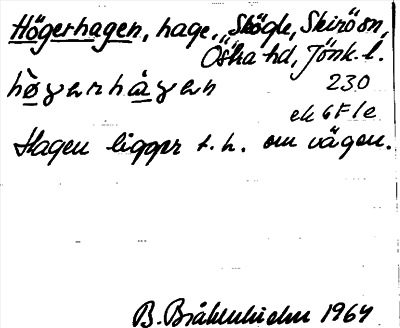 Högerhagen, hage, Skögle, Skirö sn,
Östra hd, Jönk. l.
230
ek 6F1e
Hagen ligger t. h. om vägen.
B. 1964